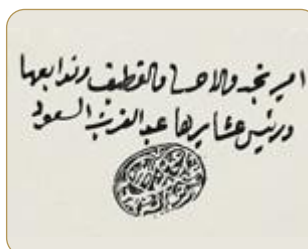 امير نجد والاحسا والقطيف وتوابعها
ورئيس عشايرها عبدالعزيز السعود